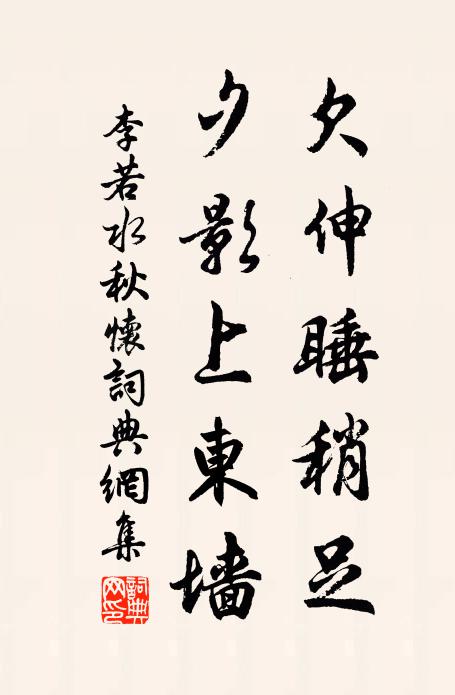 欠伸睡稍足
夕影上東墻
李若水秋懷詞典網集
詞典網印